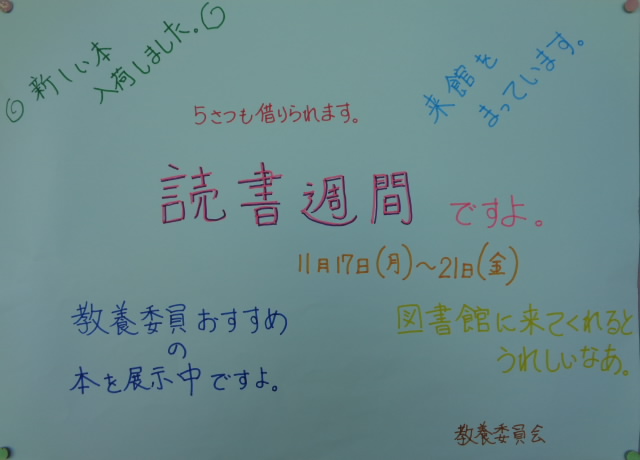 新しい本
入荷しました。
来館を
まっています。
5さつも借りられます。
読書週間 ですよ。
11月17日(月)～21日(金)
教養委員おすすめ
の
本を展示中ですよ。
図書館に来てくれると
うれしいなあ。
教養委員会